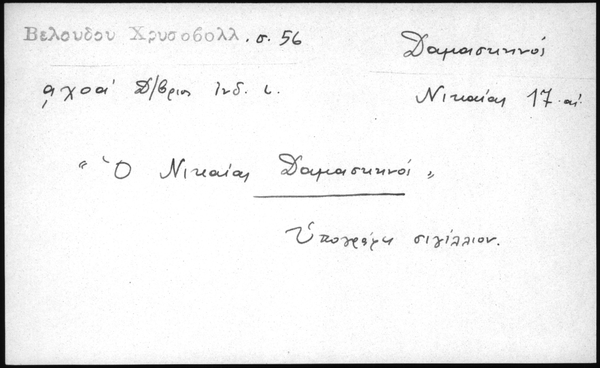 Βελουδου Χρυσοβολλ. σ. 56
Δαμασκηνός
͵αχοα΄ Δ/βριος ἰνδ. ι.
Νικαίας 17. αἰ.
“Ὁ Νικαίας Δαμασκηνός„
Ὑπογράφει σιγίλλιον.